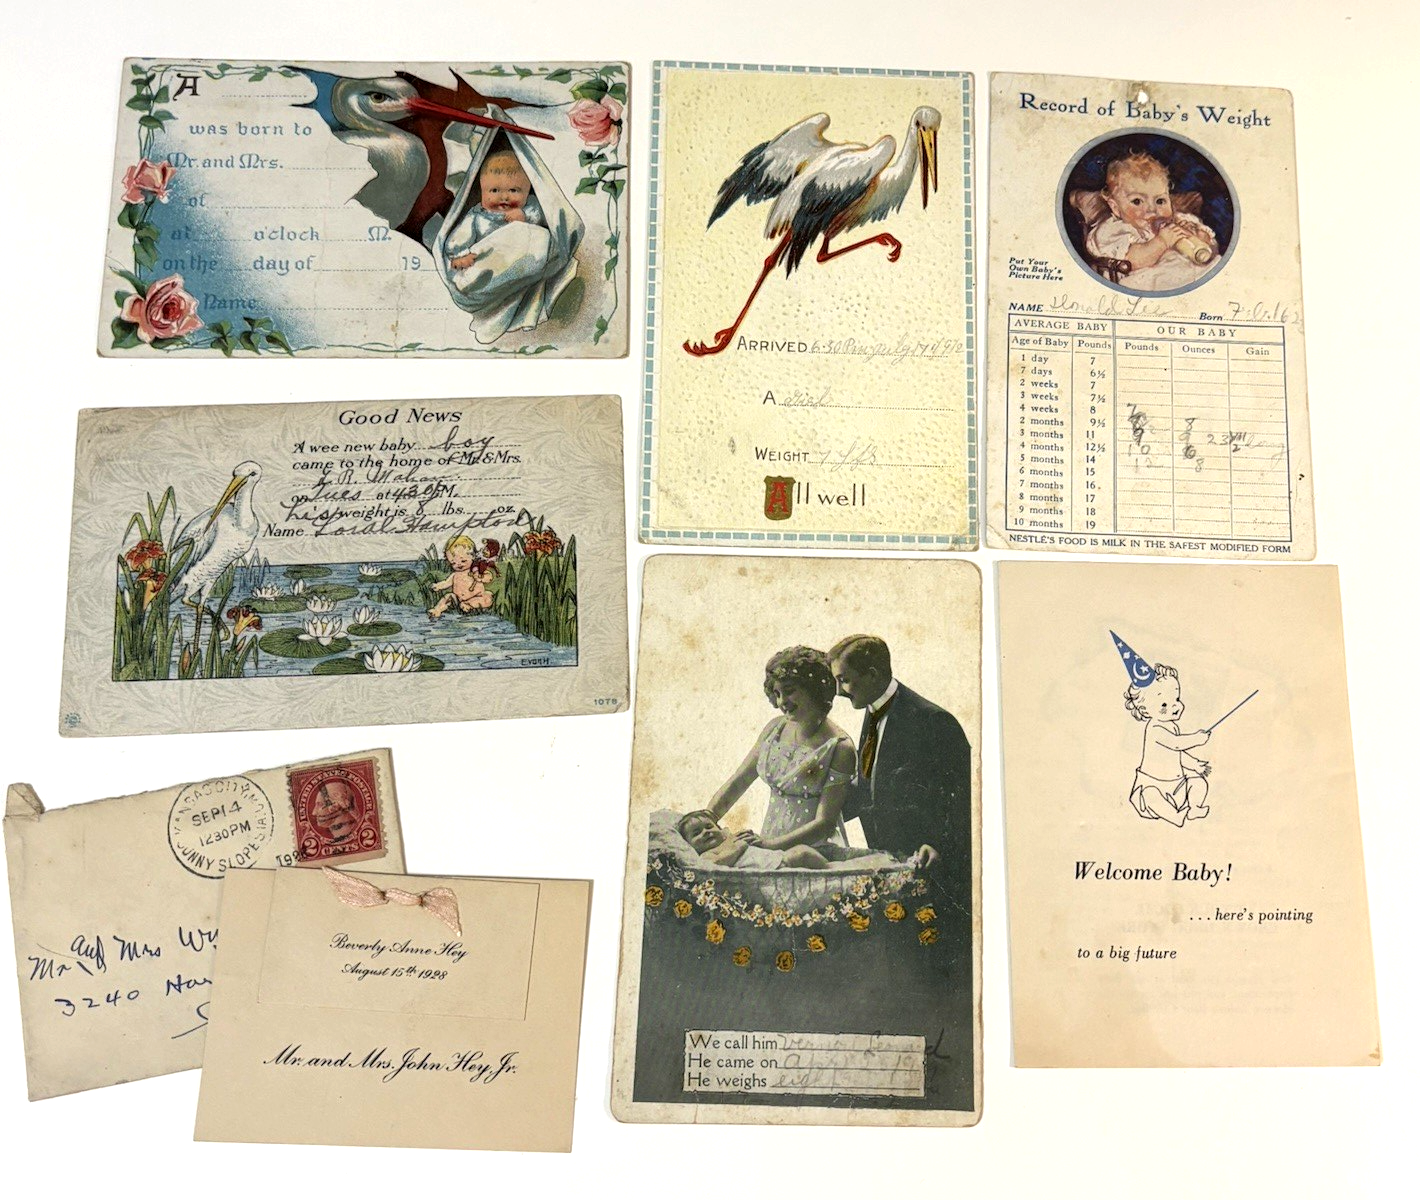 A
was born to
Mr. and Mrs.
of
at o'clock M.
on the day of 19
Name
Good News
A wee new baby boy
came to the home of Mr. & Mrs.
R. Mahan
on Tues at 4:30 P.M.
his weight is 8 lbs. oz.
Name Loral Hampton
EVOTH
1078
KANSAS CITY, MO.
SEP 14
12 30 PM
SUNNY SLOPE STA.
UNITED STATES POSTAGE
2 CENTS 2
Mr and Mrs
3240
Beverly Anne Hey
August 15th 1928
Mr. and Mrs. John Hey, Jr.
ARRIVED 6-30 P.M. July 17 1910
A Girl
WEIGHT 7 lbs
All well
We call him Vernon Leonard
He came on Apr
He weighs eight
Record of Baby's Weight
Put Your
Own Baby's
Picture Here
NAME Donald Lee Born Feb. 16
AVERAGE BABY OUR BABY
Age of Baby Pounds Pounds Ounces Gain
1 day 7
7 days 6½
2 weeks 7
3 weeks 7½
4 weeks 8
2 months 9½ 8
3 months 11 23
4 months 12½ 10 6
5 months 14 12 8
6 months 15
7 months 16
8 months 17
9 months 18
10 months 19
NESTLÉ'S FOOD IS MILK IN THE SAFEST MODIFIED FORM
Welcome Baby!
... here's pointing
to a big future